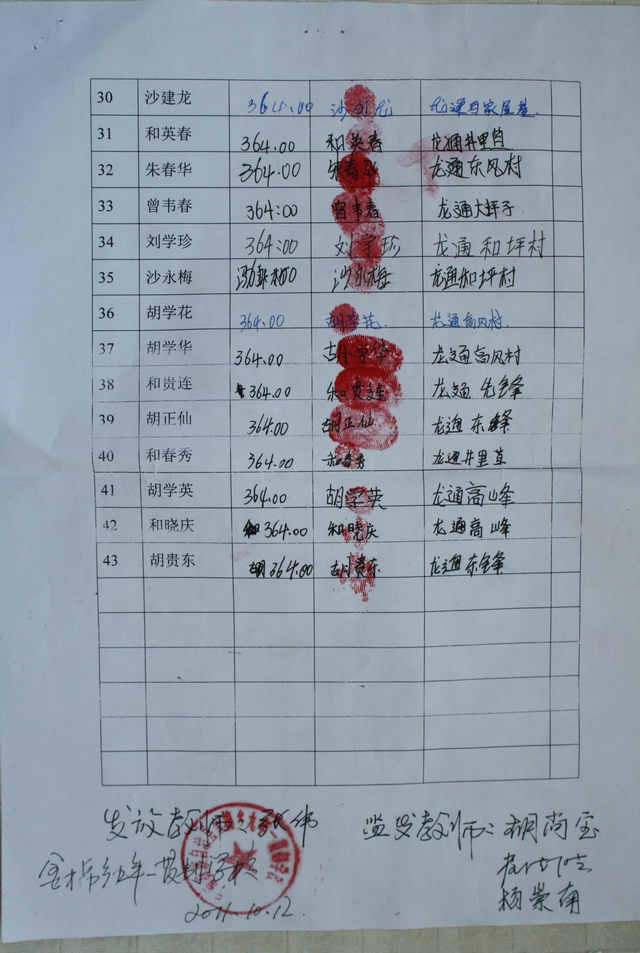 30 沙建龙 364.00 沙建龙
31 和英春 364.00 和英春 龙通井里
32 朱春华 364.00 朱春华 龙通东风村
33 曾韦春 364:00 曾韦春 龙通大坪子
34 刘学珍 364:00 刘学珍 龙通和坪村
35 沙永梅 沙永梅 龙通和坪村
36 胡学花 364.00 胡学花 龙通高风村
37 胡学华 364.00 胡学华 龙通高风村
38 和贵连 364.00 和贵连 龙通先锋
39 胡正仙 364.00 胡正仙 龙通东锋
40 和春秀 364.00 和春秀 龙通井里
41 胡学英 364.00 胡学英 龙通高峰
42 和晓庆 364.00 和晓庆 龙通高峰
43 胡贵东 364.00 胡贵东 龙通东锋
发放教师 监发教师: 胡尚宝
九年一贯制学校
2011.10.12 杨崇南